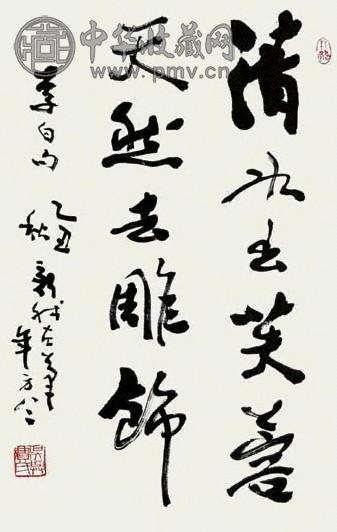 清水出芙蓉
天然去雕饰
李白句
乙丑秋
新我左笔
年方八六
中华收藏网
www.pmv.cn